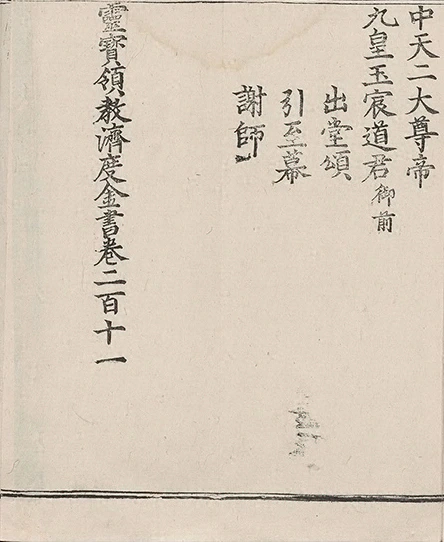 中天二大尊帝
九皇玉宸道君御前
出堂頌
引至幕
謝師
靈寳領教濟度金書卷二百十一